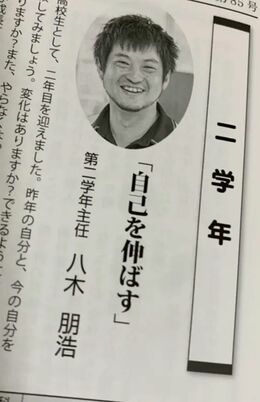 85号
二学年
「自己を伸ばす」
第二学年主任 八木 朋浩
高校生として、二年目を迎えました。昨年の自分と、今の自分を
してみましょう。変化はありますか?できるように
りますか?また、やらなく